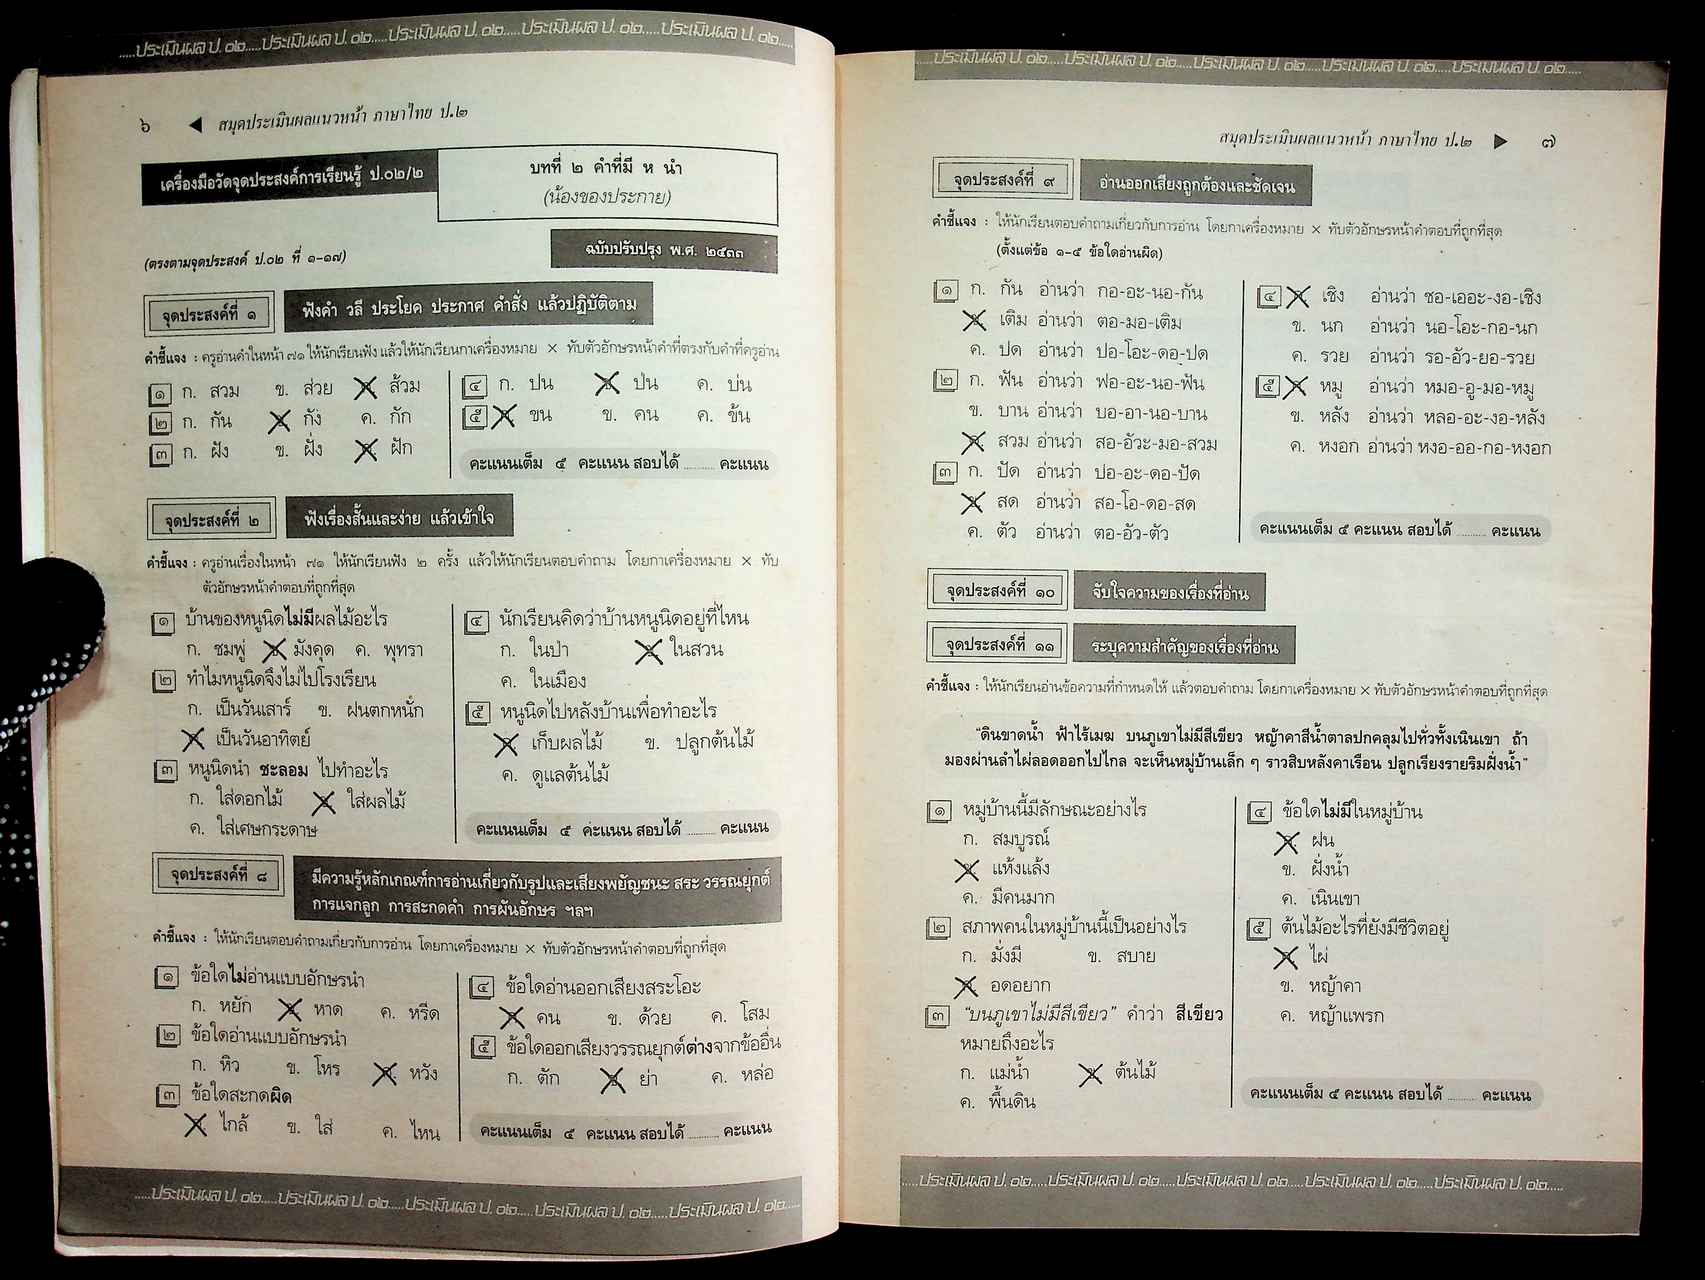 .....ประเมินผล ป. ๐๒.....ประเมินผล ป. ๐๒.....ประเมินผล ป. ๐๒.....ประเมินผล ป. ๐๒.....ประเมินผล ป. ๐๒.....
๖ ◀ สมุดประเมินผลแนวหน้า ภาษาไทย ป.๒
เครื่องมือวัดจุดประสงค์การเรียนรู้ ป.๐๒/๒
บทที่ ๒ คำที่มี ห นำ
(น้องของประกาย)
(ตรงตามจุดประสงค์ ป.๐๒ ที่ ๑-๑๗)
ฉบับปรับปรุง พ.ศ. ๒๕๓๓
จุดประสงค์ที่ ๑ ฟังคำ วลี ประโยค ประกาศ คำสั่ง แล้วปฏิบัติตาม
คำชี้แจง : ครูอ่านคำในหน้า ๗๑ ให้นักเรียนฟัง แล้วให้นักเรียนกาเครื่องหมาย × ทับตัวอักษรหน้าคำที่ตรงกับคำที่ครูอ่าน
๑ ก. สวม ข. ส่วย ค. ส้วม
๒ ก. กัน ข. กัง ค. กัก
๓ ก. ฝัง ข. ฝั่ง ค. ฝัก
๔ ก. ปน ข. ป่น ค. บ่น
๕ ก. ขน ข. คน ค. ข้น
คะแนนเต็ม ๕ คะแนน สอบได้ .......... คะแนน
จุดประสงค์ที่ ๒ ฟังเรื่องสั้นและง่าย แล้วเข้าใจ
คำชี้แจง : ครูอ่านเรื่องในหน้า ๗๑ ให้นักเรียนฟัง ๒ ครั้ง แล้วให้นักเรียนตอบคำถาม โดยกาเครื่องหมาย × ทับ
ตัวอักษรหน้าคำตอบที่ถูกที่สุด
๑ บ้านของหนูนิดไม่มีผลไม้อะไร
ก. ชมพู่ ข. มังคุด ค. พุทรา
๒ ทำไมหนูนิดจึงไม่ไปโรงเรียน
ก. เป็นวันเสาร์ ข. ฝนตกหนัก
ค. เป็นวันอาทิตย์
๓ หนูนิดนำ ชะลอม ไปทำอะไร
ก. ใส่ดอกไม้ ข. ใส่ผลไม้
ค. ใส่เศษกระดาษ
๔ นักเรียนคิดว่าบ้านหนูนิดอยู่ที่ไหน
ก. ในป่า ข. ในสวน
ค. ในเมือง
๕ หนูนิดไปหลังบ้านเพื่อทำอะไร
ก. เก็บผลไม้ ข. ปลูกต้นไม้
ค. ดูแลต้นไม้
คะแนนเต็ม ๕ คะแนน สอบได้ .......... คะแนน
จุดประสงค์ที่ ๘ มีความรู้หลักเกณฑ์การอ่านเกี่ยวกับรูปและเสียงพยัญชนะ สระ วรรณยุกต์
การแจกลูก การสะกดคำ การผันอักษร ฯลฯ
คำชี้แจง : ให้นักเรียนตอบคำถามเกี่ยวกับการอ่าน โดยกาเครื่องหมาย × ทับตัวอักษรหน้าคำตอบที่ถูกที่สุด
๑ ข้อใดไม่อ่านแบบอักษรนำ
ก. หยัก ข. หาด ค. หรีด
๒ ข้อใดอ่านแบบอักษรนำ
ก. หิว ข. โหร ค. หวัง
๓ ข้อใดสะกดผิด
ก. ไกล้ ข. ใส่ ค. ไหน
๔ ข้อใดอ่านออกเสียงสระโอะ
ก. คน ข. ด้วย ค. โสม
๕ ข้อใดออกเสียงวรรณยุกต์ต่างจากข้ออื่น
ก. ตัก ข. ย่า ค. หล่อ
คะแนนเต็ม ๕ คะแนน สอบได้ .......... คะแนน
.....ประเมินผล ป. ๐๒.....ประเมินผล ป. ๐๒.....ประเมินผล ป. ๐๒.....ประเมินผล ป. ๐๒.....ประเมินผล ป. ๐๒.....
.....ประเมินผล ป. ๐๒.....ประเมินผล ป. ๐๒.....ประเมินผล ป. ๐๒.....ประเมินผล ป. ๐๒.....ประเมินผล ป. ๐๒.....
สมุดประเมินผลแนวหน้า ภาษาไทย ป.๒ ▶ ๗
จุดประสงค์ที่ ๙ อ่านออกเสียงถูกต้องและชัดเจน
คำชี้แจง : ให้นักเรียนตอบคำถามเกี่ยวกับการอ่าน โดยกาเครื่องหมาย × ทับตัวอักษรหน้าคำตอบที่ถูกที่สุด
(ตั้งแต่ข้อ ๑-๕ ข้อใดอ่านผิด)
๑ ก. กัน อ่านว่า กอ-อะ-นอ-กัน
ข. เติม อ่านว่า ตอ-มอ-เติม
ค. ปด อ่านว่า ปอ-โอะ-ดอ-ปด
๒ ก. ฟัน อ่านว่า ฟอ-อะ-นอ-ฟัน
ข. บาน อ่านว่า บอ-อา-นอ-บาน
ค. สวม อ่านว่า สอ-อัวะ-มอ-สวม
๓ ก. ปัด อ่านว่า ปอ-อะ-ดอ-ปัด
ข. สด อ่านว่า สอ-โอ-ดอ-สด
ค. ตัว อ่านว่า ตอ-อัว-ตัว
๔ ก. เชิง อ่านว่า ชอ-เออะ-งอ-เชิง
ข. นก อ่านว่า นอ-โอะ-กอ-นก
ค. รวย อ่านว่า รอ-อัว-ยอ-รวย
๕ ก. หมู อ่านว่า หมอ-อู-มอ-หมู
ข. หลัง อ่านว่า หลอ-อะ-งอ-หลัง
ค. หงอก อ่านว่า หงอ-ออ-กอ-หงอก
คะแนนเต็ม ๕ คะแนน สอบได้ .......... คะแนน
จุดประสงค์ที่ ๑๐ จับใจความของเรื่องที่อ่าน
จุดประสงค์ที่ ๑๑ ระบุความสำคัญของเรื่องที่อ่าน
คำชี้แจง : ให้นักเรียนอ่านข้อความที่กำหนดให้ แล้วตอบคำถาม โดยกาเครื่องหมาย × ทับตัวอักษรหน้าคำตอบที่ถูกที่สุด
"ดินขาดน้ำ ฟ้าไร้เมฆ บนภูเขาไม่มีสีเขียว หญ้าคาสีน้ำตาลปกคลุมไปทั่วทั้งเนินเขา ถ้า
มองผ่านลำไผ่ลอดออกไปไกล จะเห็นหมู่บ้านเล็ก ๆ ราวสิบหลังคาเรือน ปลูกเรียงรายริมฝั่งน้ำ"
๑ หมู่บ้านนี้มีลักษณะอย่างไร
ก. สมบูรณ์
ข. แห้งแล้ง
ค. มีคนมาก
๒ สภาพคนในหมู่บ้านนี้เป็นอย่างไร
ก. มั่งมี ข. สบาย
ค. อดอยาก
๓ "บนภูเขาไม่มีสีเขียว" คำว่า สีเขียว
หมายถึงอะไร
ก. แม่น้ำ ข. ต้นไม้
ค. พื้นดิน
๔ ข้อใดไม่มีในหมู่บ้าน
ก. ฝน
ข. ฝั่งน้ำ
ค. เนินเขา
๕ ต้นไม้อะไรที่ยังมีชีวิตอยู่
ก. ไผ่
ข. หญ้าคา
ค. หญ้าแพรก
คะแนนเต็ม ๕ คะแนน สอบได้ .......... คะแนน
.....ประเมินผล ป. ๐๒.....ประเมินผล ป. ๐๒.....ประเมินผล ป. ๐๒.....ประเมินผล ป. ๐๒.....ประเมินผล ป. ๐๒.....